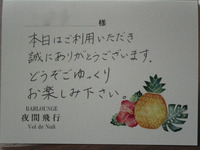 様
本日はご利用いただき
誠にありがとうございます.
どうぞごゆっくり
お楽しみ下さい。
BARLOUNGE
夜間飛行
Vol de Nuit